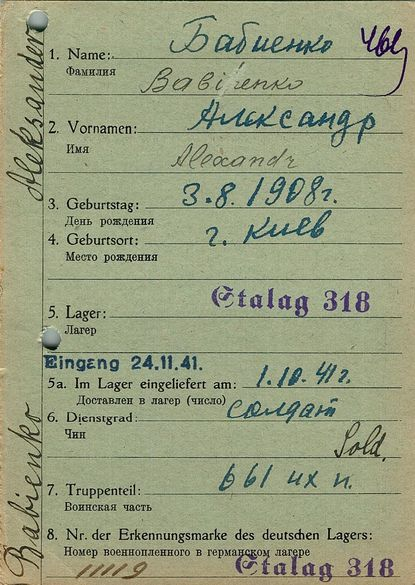 Babienko Aleksander
1. Name: Бабиенко
Фамилия
Babijenko
2. Vornamen: Александр
Имя
Alexandr
3. Geburtstag: 3.8.1908г.
День рождения
4. Geburtsort: г. Киев
Место рождения
Stalag 318
5. Lager:
Лагер
Eingang 24.11.41.
5a. Im Lager eingeliefert am: 1.10.41г.
Доставлен в лагер (число)
6. Dienstgrad: солдат
Чин
Sold.
7. Truppenteil: 661 их п.
Воинская часть
8. Nr. der Erkennungsmarke des deutschen Lagers:
Номер военнопленного в германском лагере
11119 Stalag 318